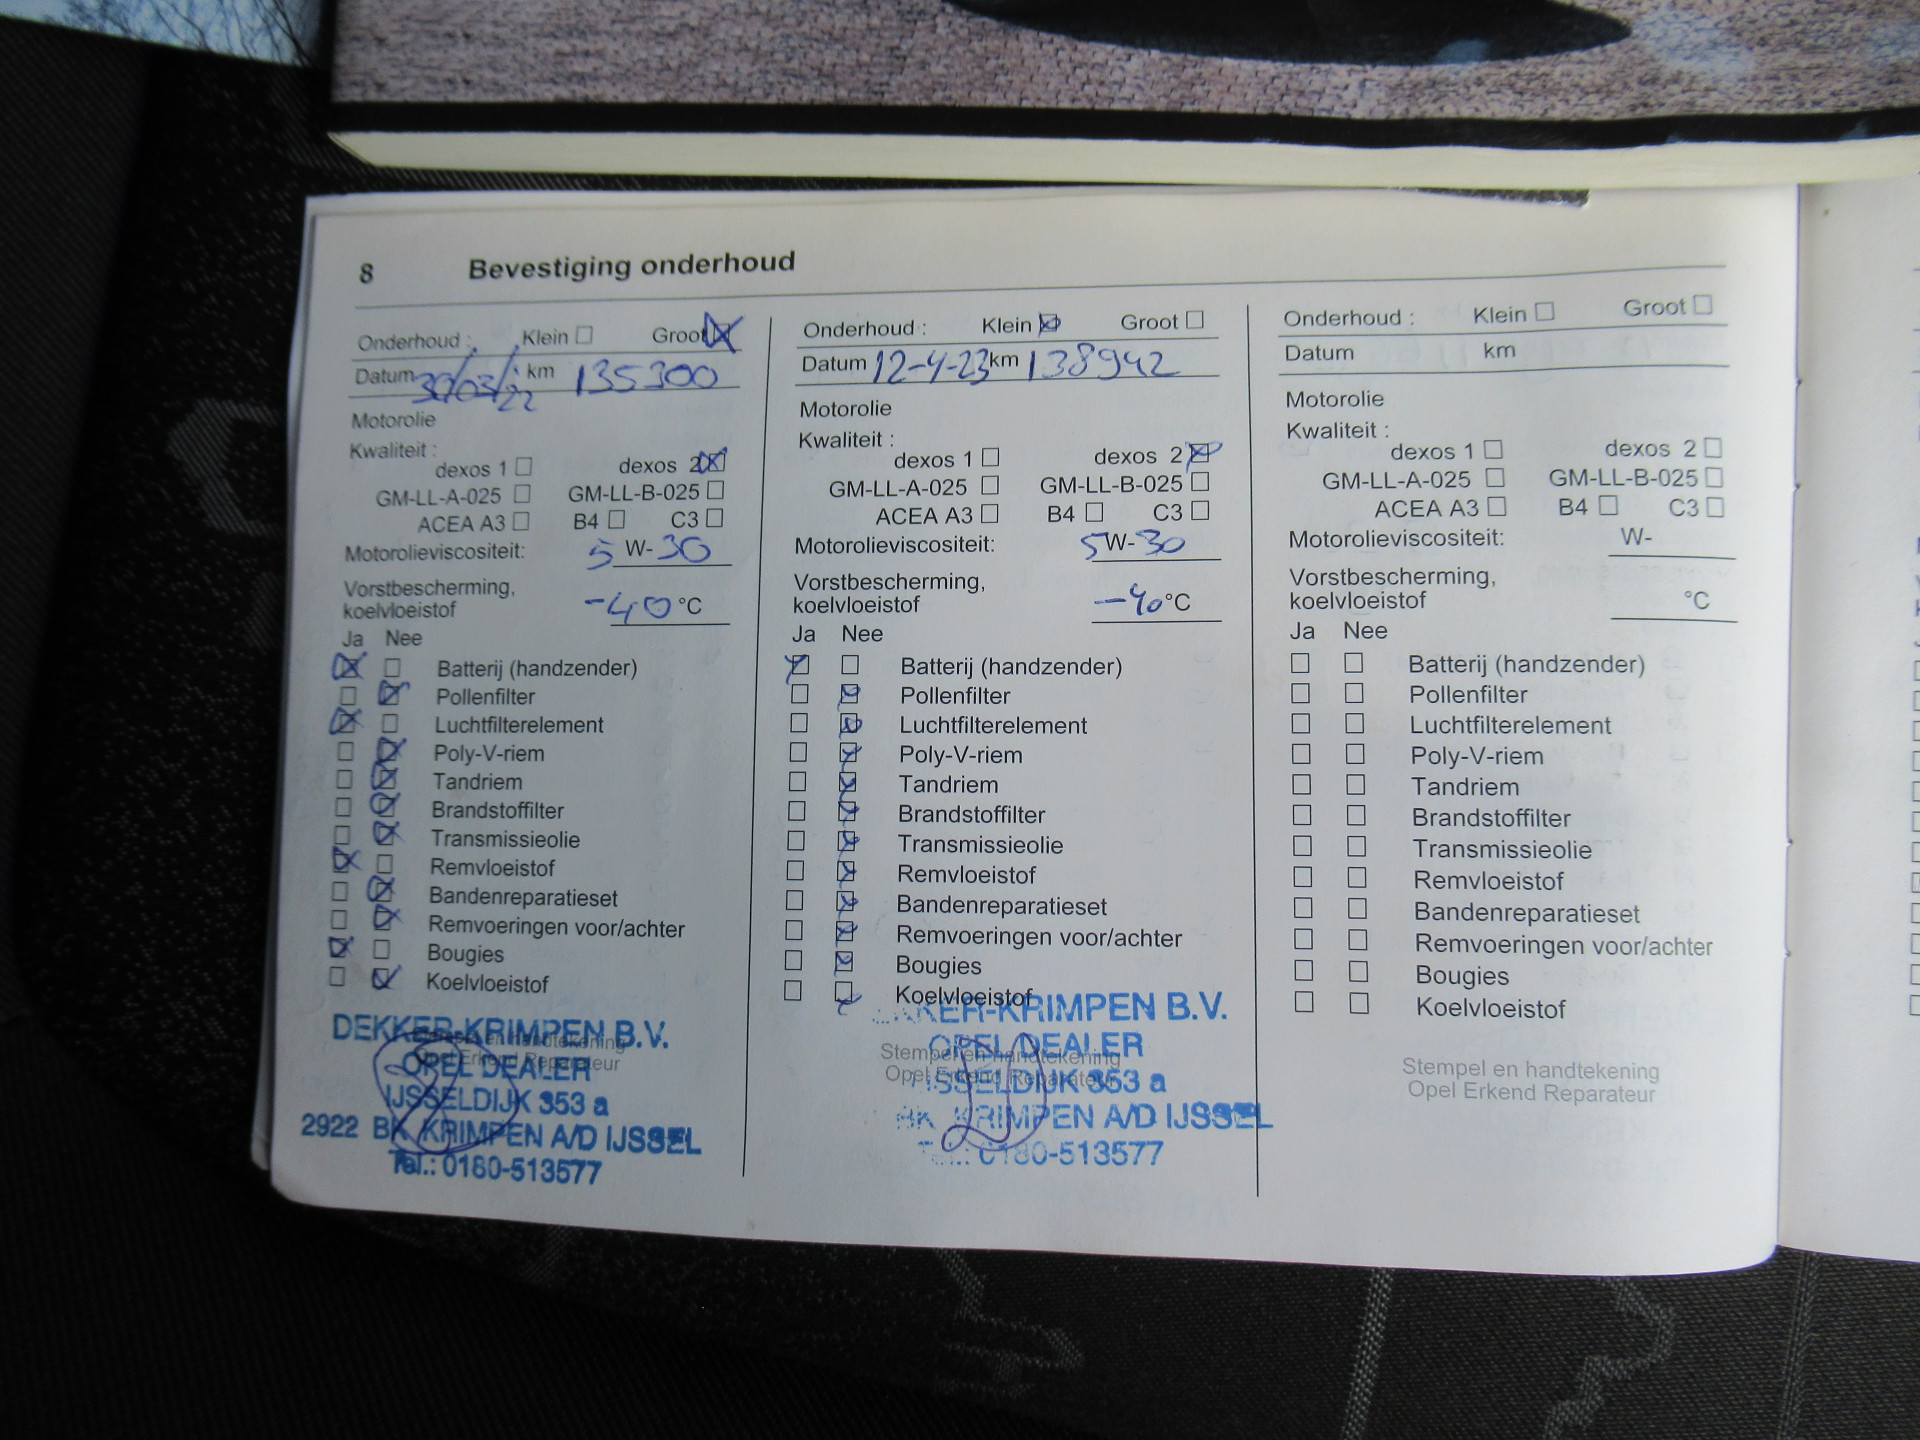 8 Bevestiging onderhoud
Onderhoud : Klein ☐ Groot ☒
Datum 30/03/22 km 135300
Motorolie
Kwaliteit :
dexos 1 ☐ dexos 2 ☒
GM-LL-A-025 ☐ GM-LL-B-025 ☐
ACEA A3 ☐ B4 ☐ C3 ☐
Motorolieviscositeit: 5 W-30
Vorstbescherming,
koelvloeistof -40 °C
Ja Nee
☒ ☐ Batterij (handzender)
☐ ☒ Pollenfilter
☒ ☐ Luchtfilterelement
☐ ☒ Poly-V-riem
☐ ☒ Tandriem
☐ ☒ Brandstoffilter
☐ ☒ Transmissieolie
☒ ☐ Remvloeistof
☐ ☒ Bandenreparatieset
☐ ☒ Remvoeringen voor/achter
☒ ☐ Bougies
☐ ☒ Koelvloeistof
Stempel en handtekening
Opel Erkend Reparateur
DEKKER-KRIMPEN B.V.
OPEL DEALER
IJSSELDIJK 353 a
2922 BK KRIMPEN A/D IJSSEL
Tel.: 0180-513577
Onderhoud : Klein ☒ Groot ☐
Datum 12-4-23 km 138942
Motorolie
Kwaliteit :
dexos 1 ☐ dexos 2 ☒
GM-LL-A-025 ☐ GM-LL-B-025 ☐
ACEA A3 ☐ B4 ☐ C3 ☐
Motorolieviscositeit: 5W-30
Vorstbescherming,
koelvloeistof -40 °C
Ja Nee
☒ ☐ Batterij (handzender)
☐ ☒ Pollenfilter
☐ ☒ Luchtfilterelement
☐ ☒ Poly-V-riem
☐ ☒ Tandriem
☐ ☒ Brandstoffilter
☐ ☒ Transmissieolie
☐ ☒ Remvloeistof
☐ ☒ Bandenreparatieset
☐ ☒ Remvoeringen voor/achter
☐ ☒ Bougies
☐ ☒ Koelvloeistof
Stempel en handtekening
Opel Erkend Reparateur
KER-KRIMPEN B.V.
OPEL DEALER
SSELDIJK 353 a
BK KRIMPEN A/D IJSSEL
Tel.: 0180-513577
Onderhoud : Klein ☐ Groot ☐
Datum km
Motorolie
Kwaliteit :
dexos 1 ☐ dexos 2 ☐
GM-LL-A-025 ☐ GM-LL-B-025 ☐
ACEA A3 ☐ B4 ☐ C3 ☐
Motorolieviscositeit: W-
Vorstbescherming,
koelvloeistof °C
Ja Nee
☐ ☐ Batterij (handzender)
☐ ☐ Pollenfilter
☐ ☐ Luchtfilterelement
☐ ☐ Poly-V-riem
☐ ☐ Tandriem
☐ ☐ Brandstoffilter
☐ ☐ Transmissieolie
☐ ☐ Remvloeistof
☐ ☐ Bandenreparatieset
☐ ☐ Remvoeringen voor/achter
☐ ☐ Bougies
☐ ☐ Koelvloeistof
Stempel en handtekening
Opel Erkend Reparateur